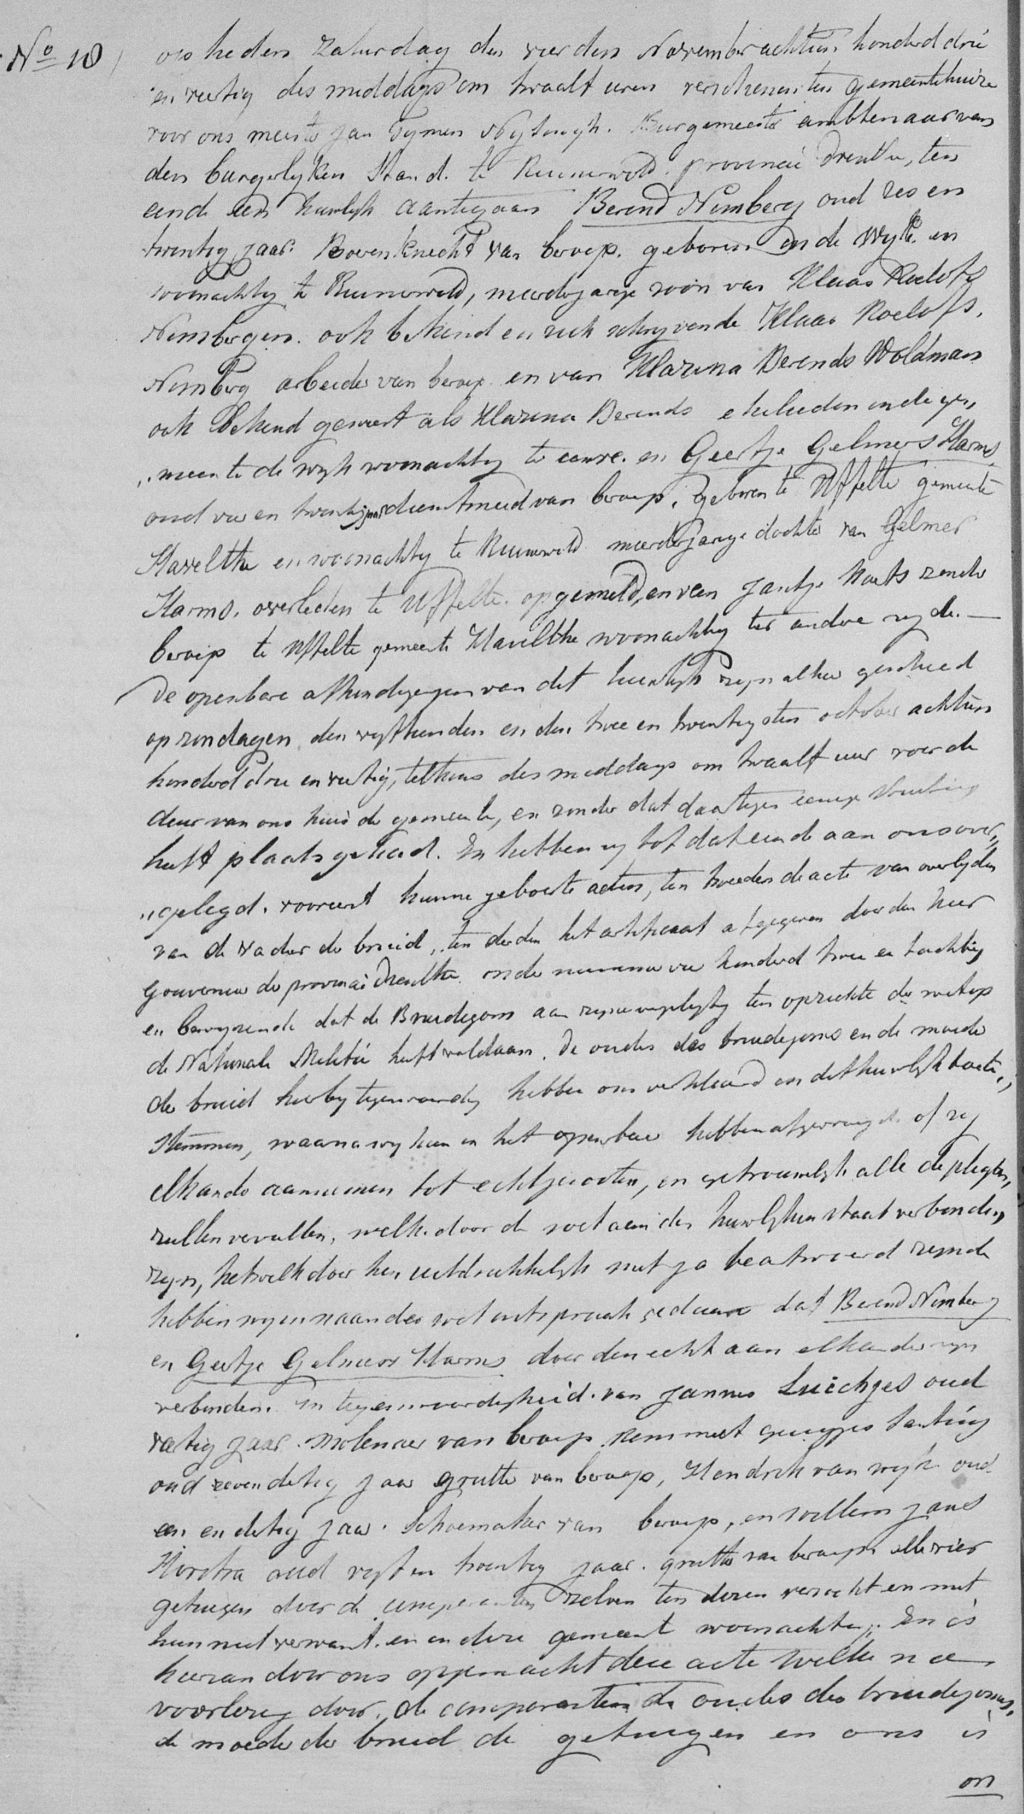 No 18 op heden Zaturdag den vierden November achttien honderd drie
en veertig des middags om twaalf uren verschenen ten gemeentehuize
voor ons meester Jan Tijmen Burgemeester ambtenaar van
den burgerlyken Stand te Ruinerwold provincie Drenthe, ten
einde een huwlijk aantegaan Berend Nimberg oud zes en
twentig jaar Bovenknecht van beroep. geboren in de Wyk en
woonachtig te Ruinerwold, meerderjarige zoon van Klaas Roelofs
Nimbergen. ook bekend en zich schryvende Klaas Roelofs.
Nimberg arbeider van beroep en van Klazina Berends Woldman
ook bekend geweest als Klazina Berends echelieden in de ge„
„meente de wyk woonachtig te eenre. en Geertje Gelmers Harms
oud vier en twentig jaar dienstmeid van beroep, geboren te Uffelte gemeente
Havelthe en woonachtig te Ruinerwold meerderjarige dochter van Gelmer
Harms. overleden te Uffelte. opgemeld, en van Jantje Kaats zonder
beroep te Uffelte gemeente Havelthe woonachtig ter andre zyde. —
De openbare afkondigingen van dit huwlijk zyn alhier geschied
op zondagen, den vyftienden en den twee en twentigsten october achttien
honderd drie en veertig, telkens des middags om twaalf uur voor de
deur van ons huis der gemeente, en zonder dat daartegen eenige stuiting
heeft plaats gehad. En hebben zy tot dat einde aan ons over„
„gelegd. vooreerst hunne geboorte acten, ten tweeden de acte van overlyden
van de vader der bruid, ten derden het certificaat afgegeven door den heer
Gouverneur der provincie Drenthe onder nummer vier honderd twee en tachtig
en bewyzende dat de Bruidegom aan zyne verpligting ten opzichte der wet op
de Nationale Militie heeft voldaan. De ouders des bruidegoms en de moeder
der bruid hierby tegenwoordig hebben ons verklaard in dit huwlijk toete„
stemmen, waarna wy hen in het openbaar hebben afgevraagd of zy
elkander aannemen tot echtgenooten, en getrouwelyk alle de plegten,
zullen vervullen, welke door de wet aan den huwlyken staat verbonden
zyn, hetwelk door hen uitdrukkelyk met ja beantwoord zynde
hebben wy in naam der wet uitspraak gedaan dat Berend Nimberg
en Geertje Gelmers Harms door den echt aan elkander zyn
verbonden. In tegenwoordigheid van Jannes Luichjes oud
veertig jaar. Molenaar van beroep
oud zeven dertig jaar grutter van beroep, Hendrik van wyk oud
een en dertig jaar. Schoemaker van beroep, en Willem Jans
Horstra oud vyf en twentig jaar. grutter van beroep alle vier
getuigen door de comparanten zelven ten dezen verzocht en met
hun niet verwant en in deze gemeente woonachtig. En is
hiervan door ons opgemaakt deze acte welke na
voorlezing door de comparanten de ouders des bruidegoms,
de moeder der bruid de getuigen en ons is
on